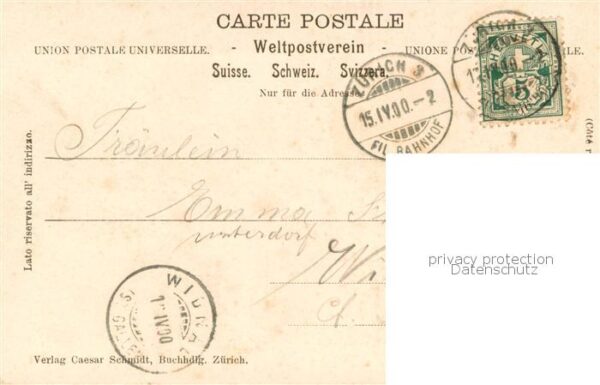 CARTE POSTALE
UNION POSTALE UNIVERSELLE. - Weltpostverein - UNIONE POSTALE
Suisse. Schweiz. Svizzera.
Nur für die Adresse.
ZÜRICH 3
15.IV.00.-2
FIL. BAHNHOF
HELVETIA
5
Lato riservato all' indirizzo.
Fräulein
Emma
unterdorf
privacy protection
Datenschutz
WIDNAU
IV 00
(ST. GALLEN)
Verlag Caesar Schmidt, Buchhdlg. Zürich.